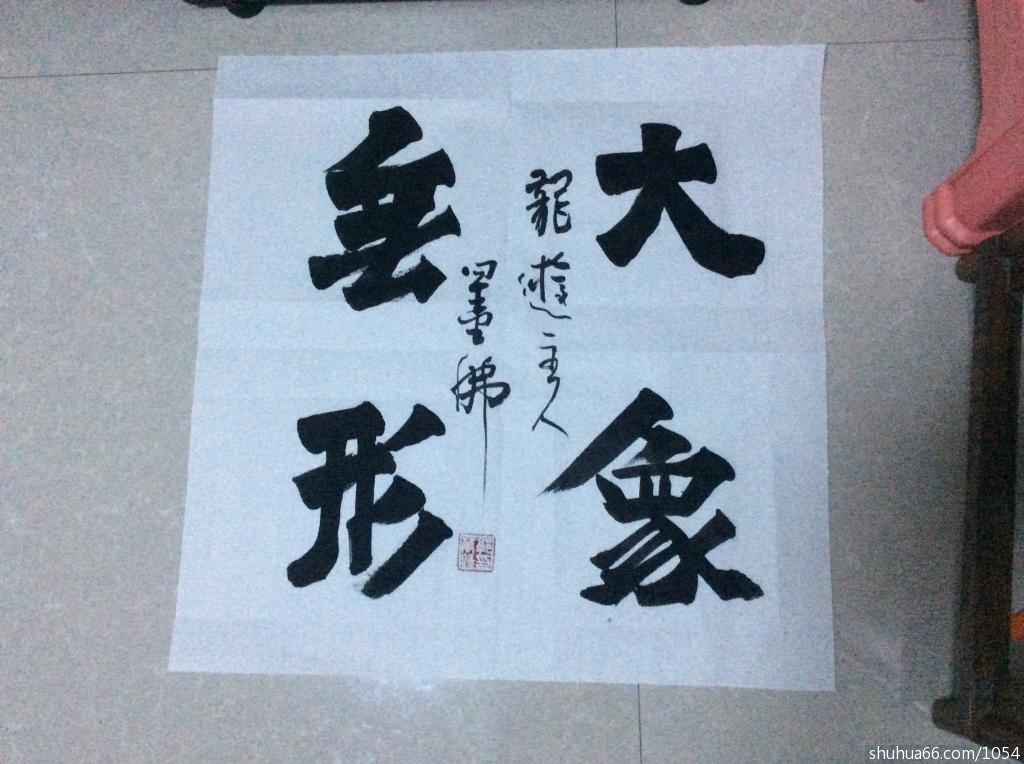 大象
龍遊主人
墨佛
無形
shuhua66.com/1054